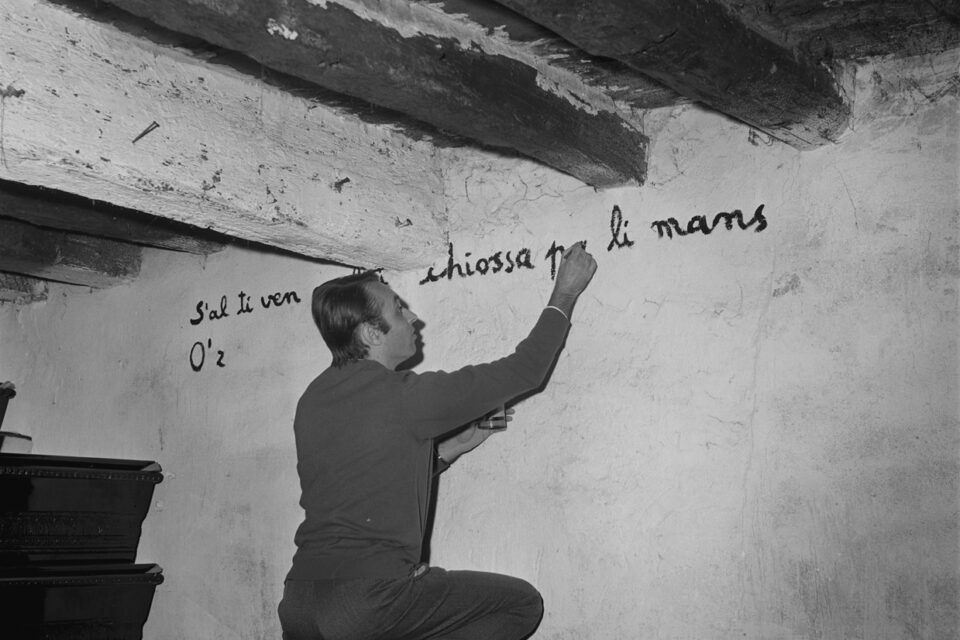 S'al ti ven chiossa li mans
O'z